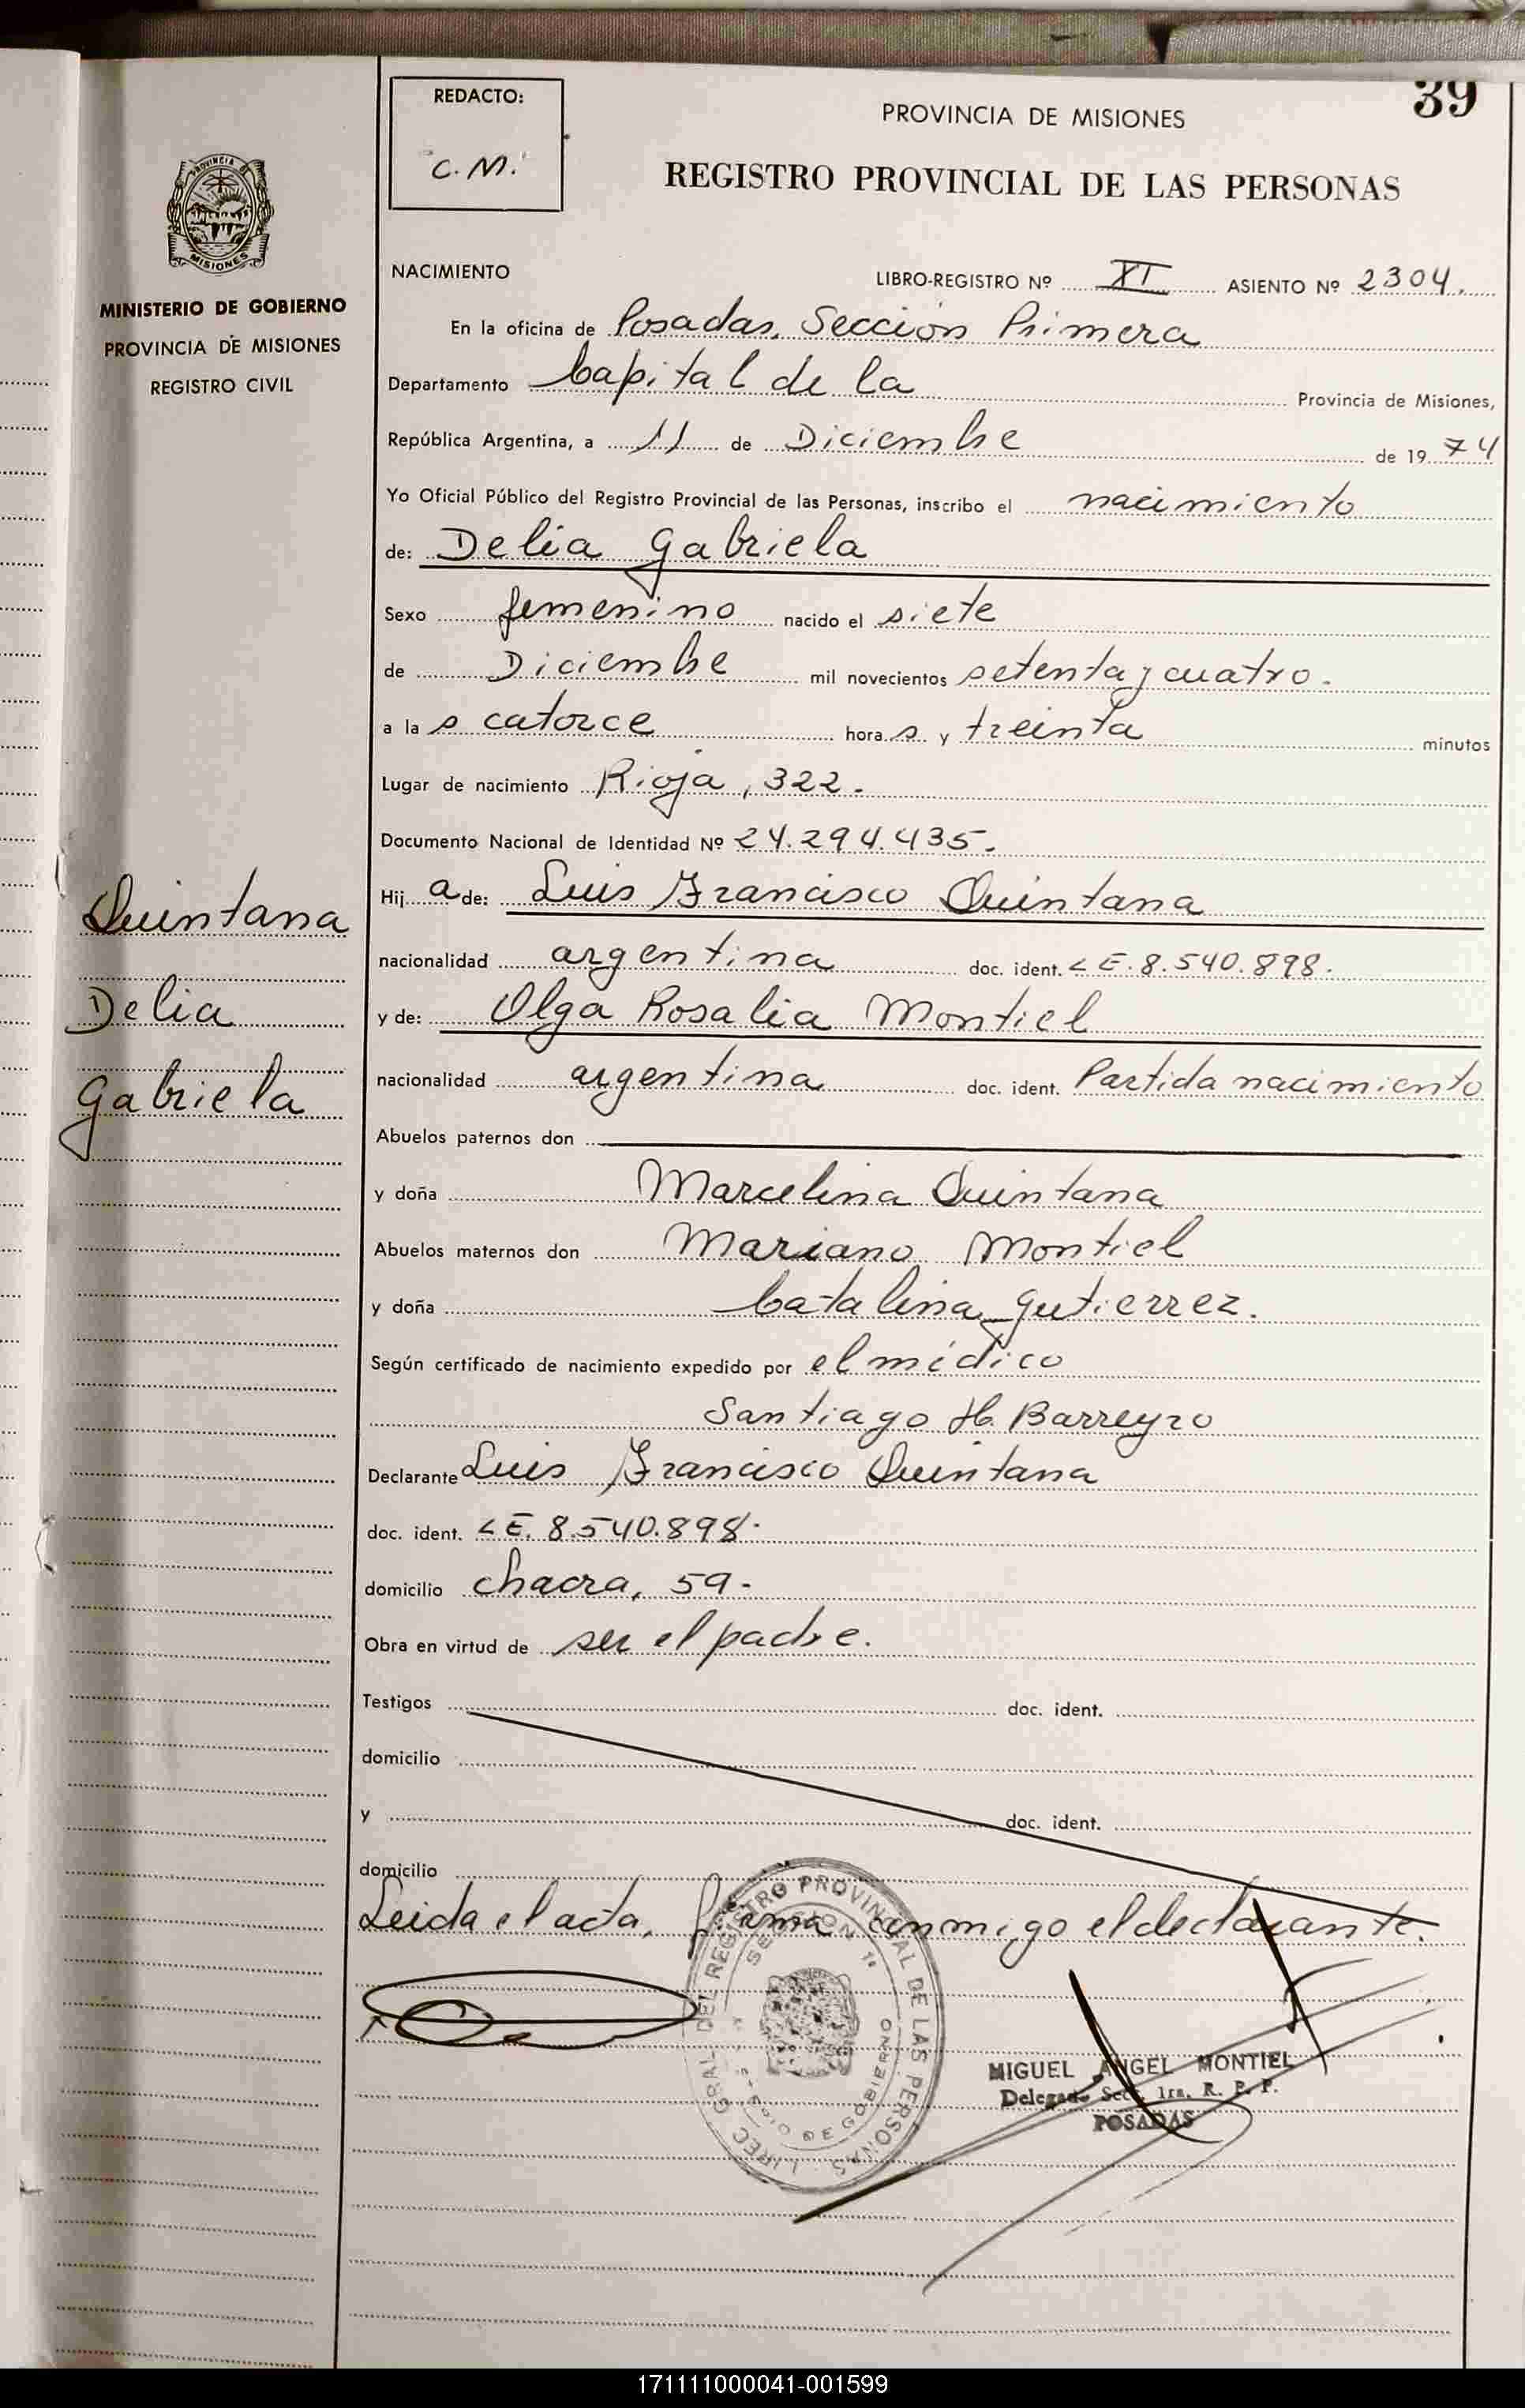 39
REDACTO:
C. M.
PROVINCIA DE MISIONES
REGISTRO PROVINCIAL DE LAS PERSONAS
PROVINCIA
MISIONES
MINISTERIO DE GOBIERNO
PROVINCIA DE MISIONES
REGISTRO CIVIL
NACIMIENTO LIBRO-REGISTRO Nº XI ASIENTO Nº 2304.
En la oficina de Posadas, Sección Primera
Departamento Capital de la Provincia de Misiones,
República Argentina, a 11 de Diciembre de 19 74
Yo Oficial Público del Registro Provincial de las Personas, inscribo el nacimiento
de: Delia Gabriela
Sexo femenino nacido el siete
de Diciembre mil novecientos setenta y cuatro.
a la s catorce hora s y treinta minutos
Lugar de nacimiento Rioja, 322.
Documento Nacional de Identidad Nº 24.294.435.
Hij a de: Luis Francisco Quintana
nacionalidad argentina doc. ident. LE. 8.540.898.
y de: Olga Rosalia Montiel
nacionalidad argentina doc. ident. Partida nacimiento
Quintana
Delia
Gabriela
Abuelos paternos don
y doña Marcelina Quintana
Abuelos maternos don Mariano Montiel
y doña Catalina Gutierrez.
Según certificado de nacimiento expedido por el médico
Santiago H. Barreyro
Declarante Luis Francisco Quintana
doc. ident. LE. 8.540.898.
domicilio chacra, 59.
Obra en virtud de ser el padre.
Testigos doc. ident.
domicilio
y doc. ident.
domicilio
Leida el acta, firma conmigo el declarante.
GRAL. DEL REGISTRO PROVINCIAL DE LAS PERSONAS
SECCION 1ª
DE GOBIERNO
MIGUEL ANGEL MONTIEL
Delegado Secc. 1ra. R. P. P.
POSADAS
171111000041-001599